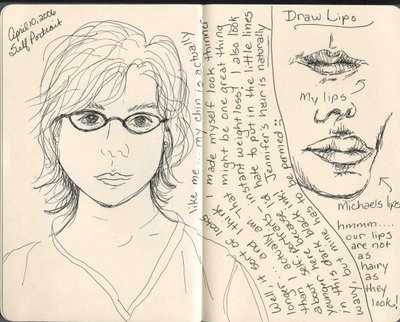 April 10, 2006
Self Portrait
Well, it sort of looks like me... my chin is actually
longer and I think that I made myself look thinner
than actually I am. might be one great thing
about self-portraits instant weight loss! I also look
younger here because I hate to put in the little lines
in this dark black ink. Jennifer's hair is naturally
wavy, but mine has to be permed
Draw Lips
My lips
Michaels lips
hmmm....
our lips
are not
as
hairy
as
they
look!